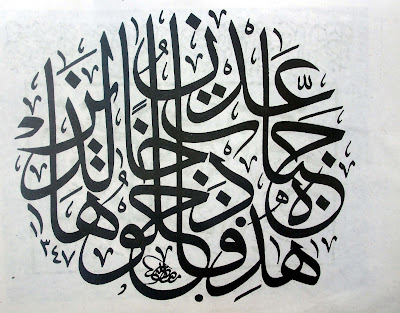 هذه جنات عدن فادخلوها خالدين
١٣٤٧